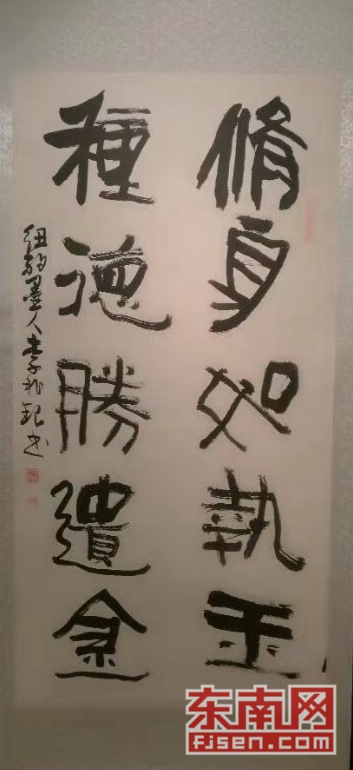 脩身如執玉
種德勝遺金
纽约墨人李兆银书
东南网
fjsen.com